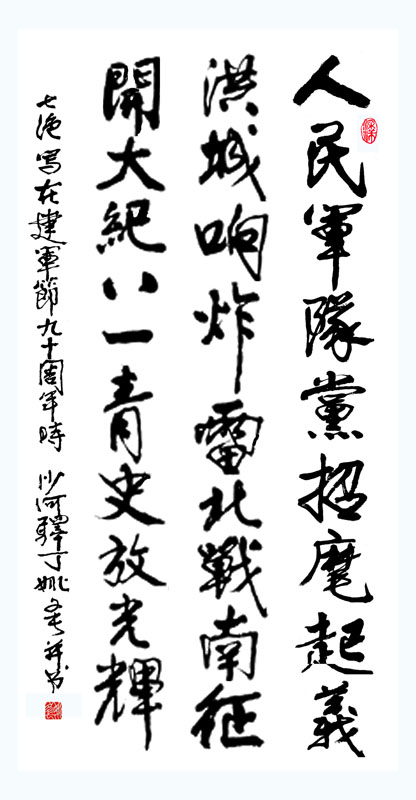 人民軍隊黨招麾起義
洪城响炸雷北戰南征
開大紀八一青史放光輝
七绝寫在建軍節九十周年時 沙河驛丁姚